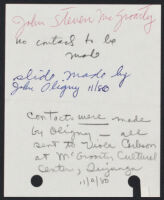 John Steven McGroarty
no contact to be
made
slide made by
John Oligny 11/80
Contacts were made
by Oligny - all
sent to Viola Carlson
at McGroarty Cultural
Center, Tujunga
11/9/80